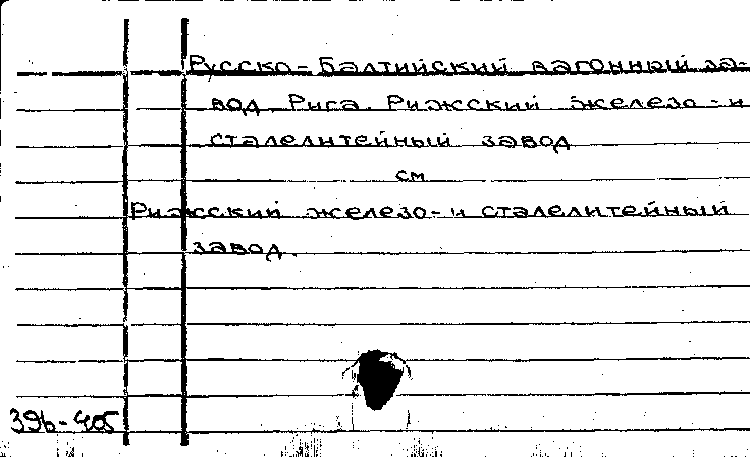 Русско-Балтийский вагонный за-
вод. Рига. Рижский железо-и
сталелитейный завод
см
Рижский железо-и сталелитейный
завод.
396-405